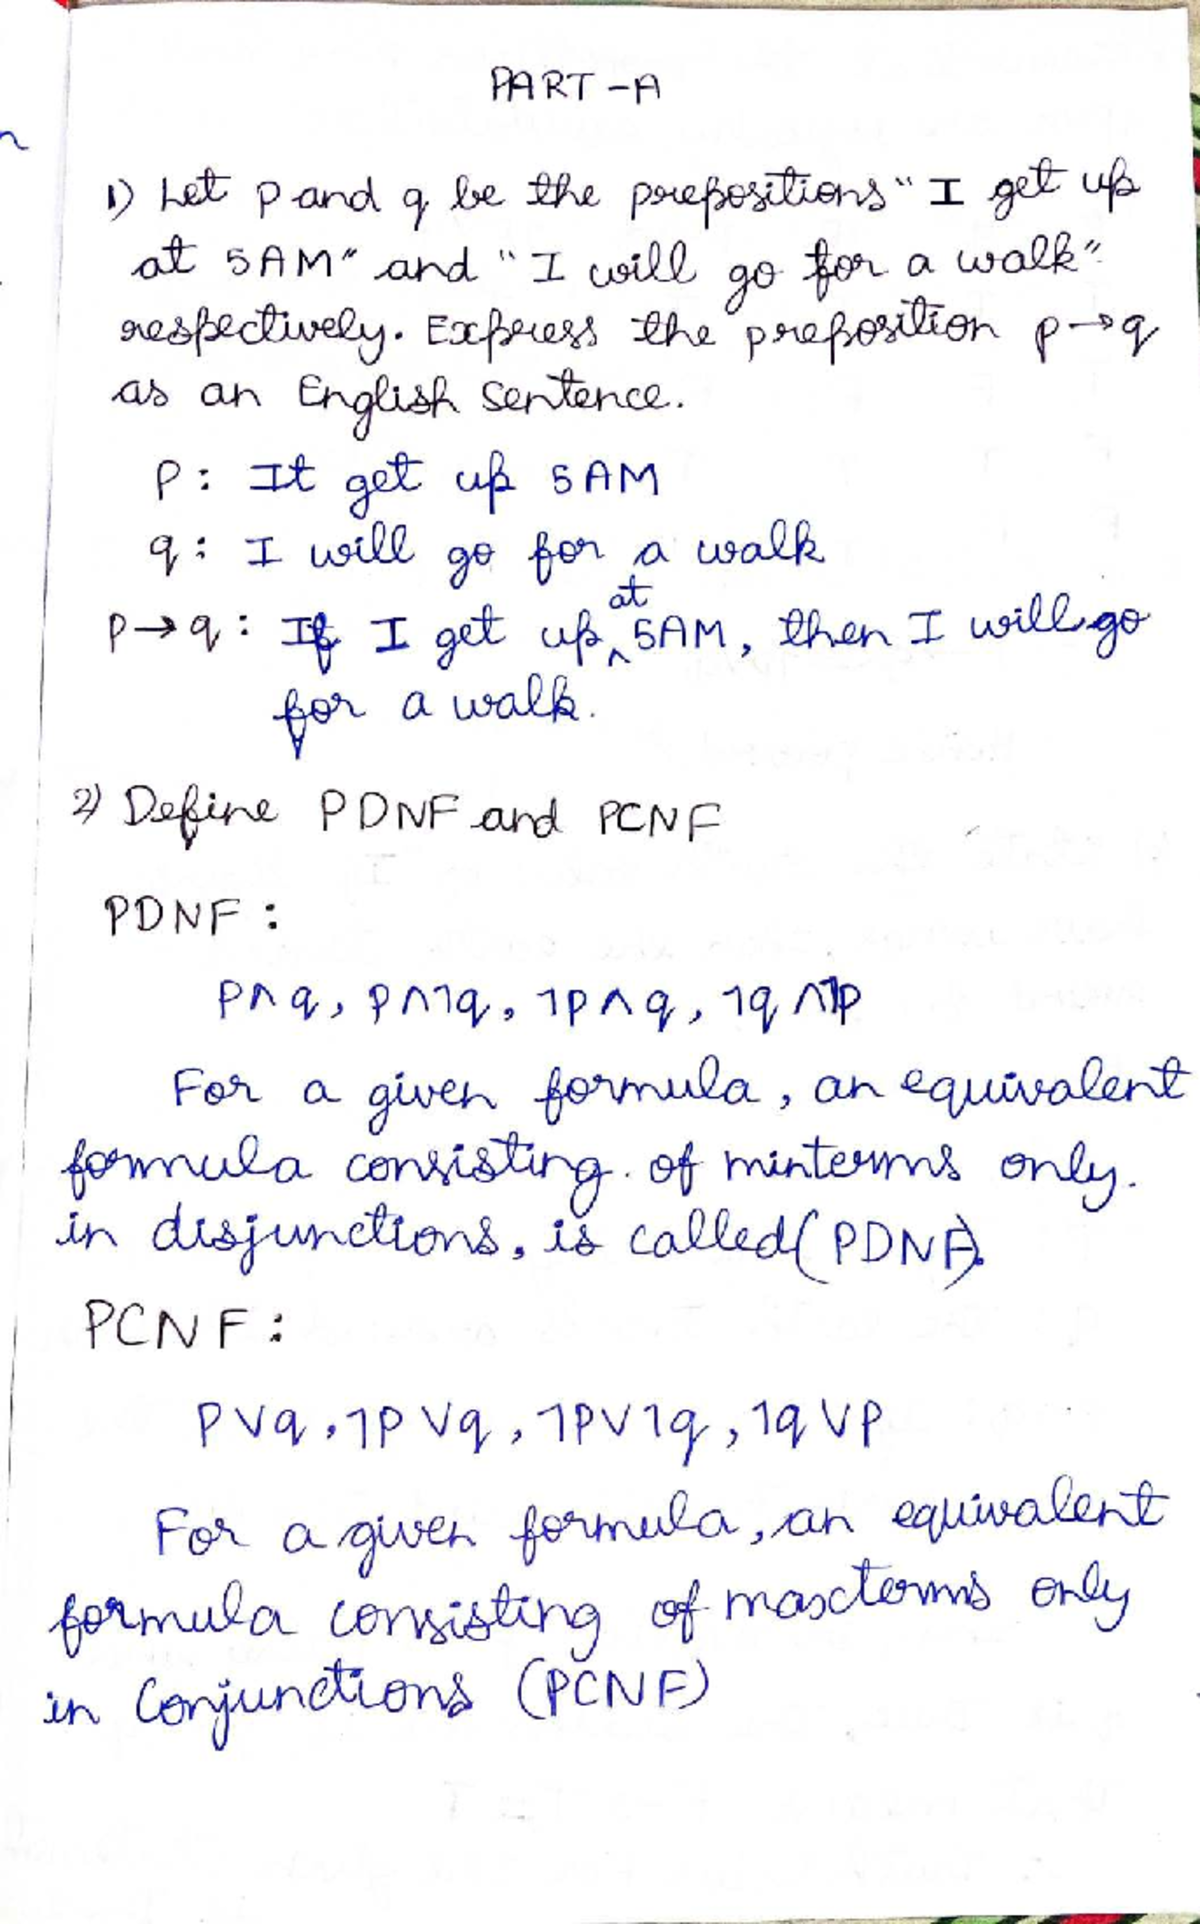 PART-A
1) Let p and q be the prepositions "I get up
at 5AM" and "I will go for a walk"
respectively. Express the preposition p→q
as an English Sentence.
P: It get up 5AM
q: I will go for a walk
at
p→q: If I get up ^ 5AM, then I will go
for a walk.
2) Define PDNF and PCNF
PDNF:
p∧q, p∧¬q, ¬p∧q, ¬q∧¬p
For a given formula, an equivalent
formula consisting of minterms only.
in disjunctions, is called (PDNF).
PCNF:
p∨q, ¬p∨q, ¬p∨¬q, ¬q∨p
For a given formula, an equivalent
formula consisting of maxterms only
in Conjunctions (PCNF)